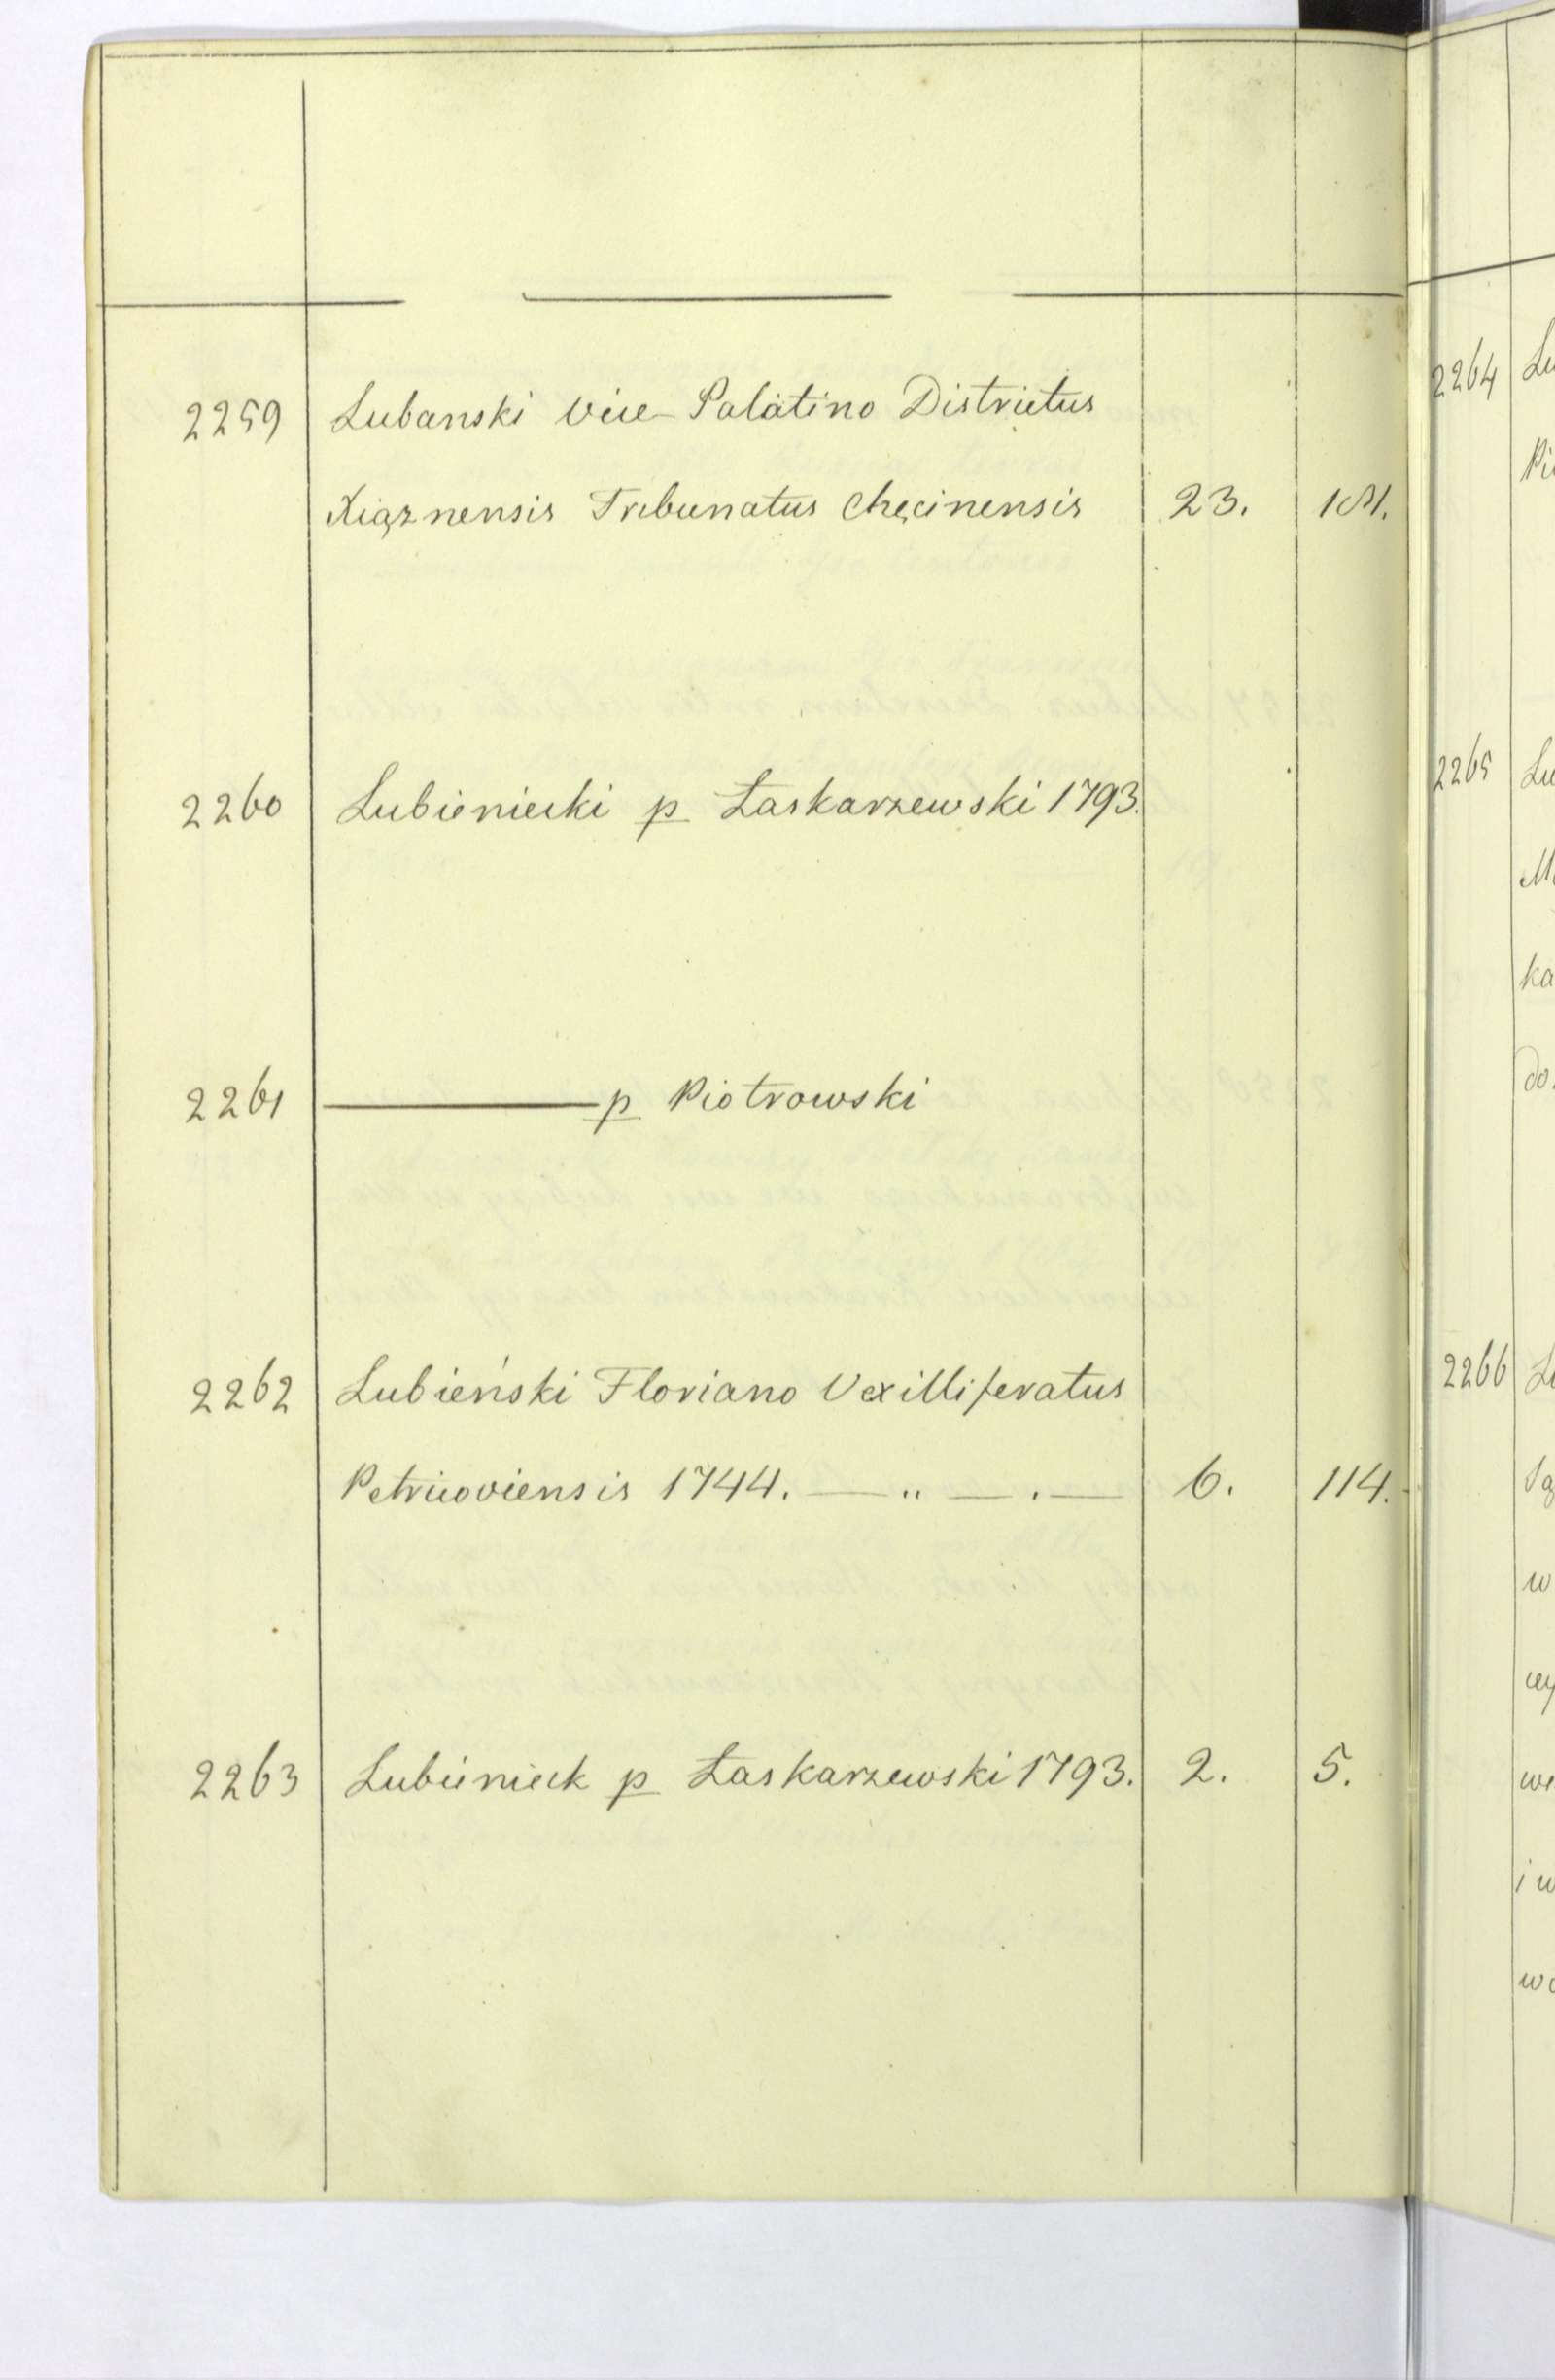 2259 Lubanski Vice-Palatino Districtus
Xiąznensis Tribunatus Chęcinensis 23.
2260 Lubieniecki p Łaskarzewski 1793.
2261 ——— p Piotrowski
2262 Lubieński Floriano Vexilliferatus
Petricoviensis 1744. — „ — . — 6. 114.
2263 Lubienieck p Łaskarzewski 1793. 2. 5.
2264 Lu
2265 Lu
ka
do.
2266
w
i w